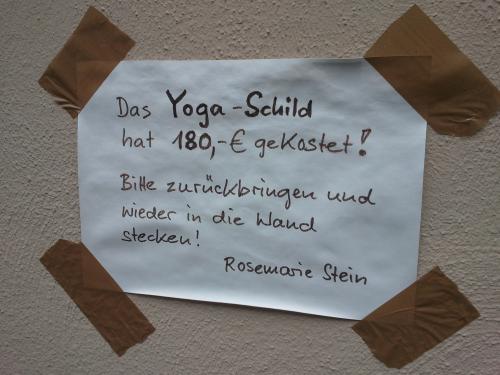 Das Yoga-Schild
hat 180,-€ gekostet!
Bitte zurückbringen und
wieder in die Wand
stecken!
Rosemarie Stein